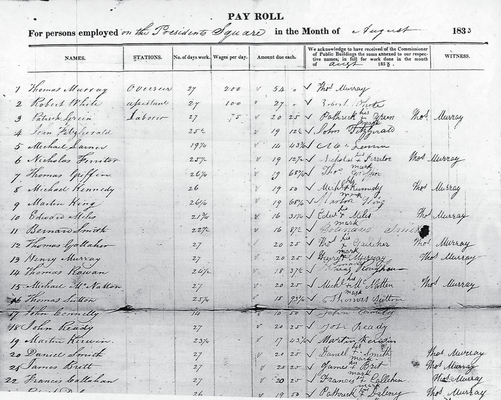 PAY ROLL
For persons employed on the Presidents Square in the Month of August 1833
NAMES. STATIONS. No. of days work. Wages per day. Amount due each. We acknowledge to have received of the Commissioner of Public Buildings the sums annexed to our respective names, in full for work done in the month of Augt 1833. WITNESS.
1 Thomas Murray Overseer 27 200 54 Thos Murray
2 Robert White 27 100 27 Robert White
3 Patrick Green Laborer 27 75 20 25 Patrick his mark Green Thos Murray
4 John Fitzgerald 25½ 19 12½ John Fitzgerald
5 Michael Larner 19¼ 14 43¾
6 Nicholas 25½ 19 12½ Nicholas his mark Thos Murray
7 Thomas Griffin 26¼ 19 68¾ Thos Griffin
8 Michael Kennedy 26 19 50 Michl his mark Kennedy Thos Murray
9 Martin King 26¼ 19 68¾ Martin King
10 Edward Miles 21¾ 16 31¼ Edwd his mark Miles Thos Murray
11 Bernard Smith 22½ 16 87½ Bernard Smith
12 Thomas Gallaher 27 20 25 Thos his mark Thos Murray
13 Henry Murray 27 20 25 Henry his mark Murray Thos Murray
14 Thomas Rowan 24½ 18 37½ Thomas
15 Michael McNatton 27 20 25 Michl his mark Thos Murray
16 Thomas Sutton 25¼ 18 93¾ Thomas Sutton
17 John Connelly 14 10 50 John Connelly
18 John Ready 27 20 25 John Ready
19 Martin Kerwin 23¼ 17 43¾ Martin Kerwin
20 Daniel Smith 27 20 25 Daniel his mark Smith Thos Murray
21 James Britt 27 20 25 James his mark Brit Thos Murray
22 Francis Callahan 27 20 25 Francis his mark Callahan Thos Murray
26 19 50 Patrick his Thos Murray